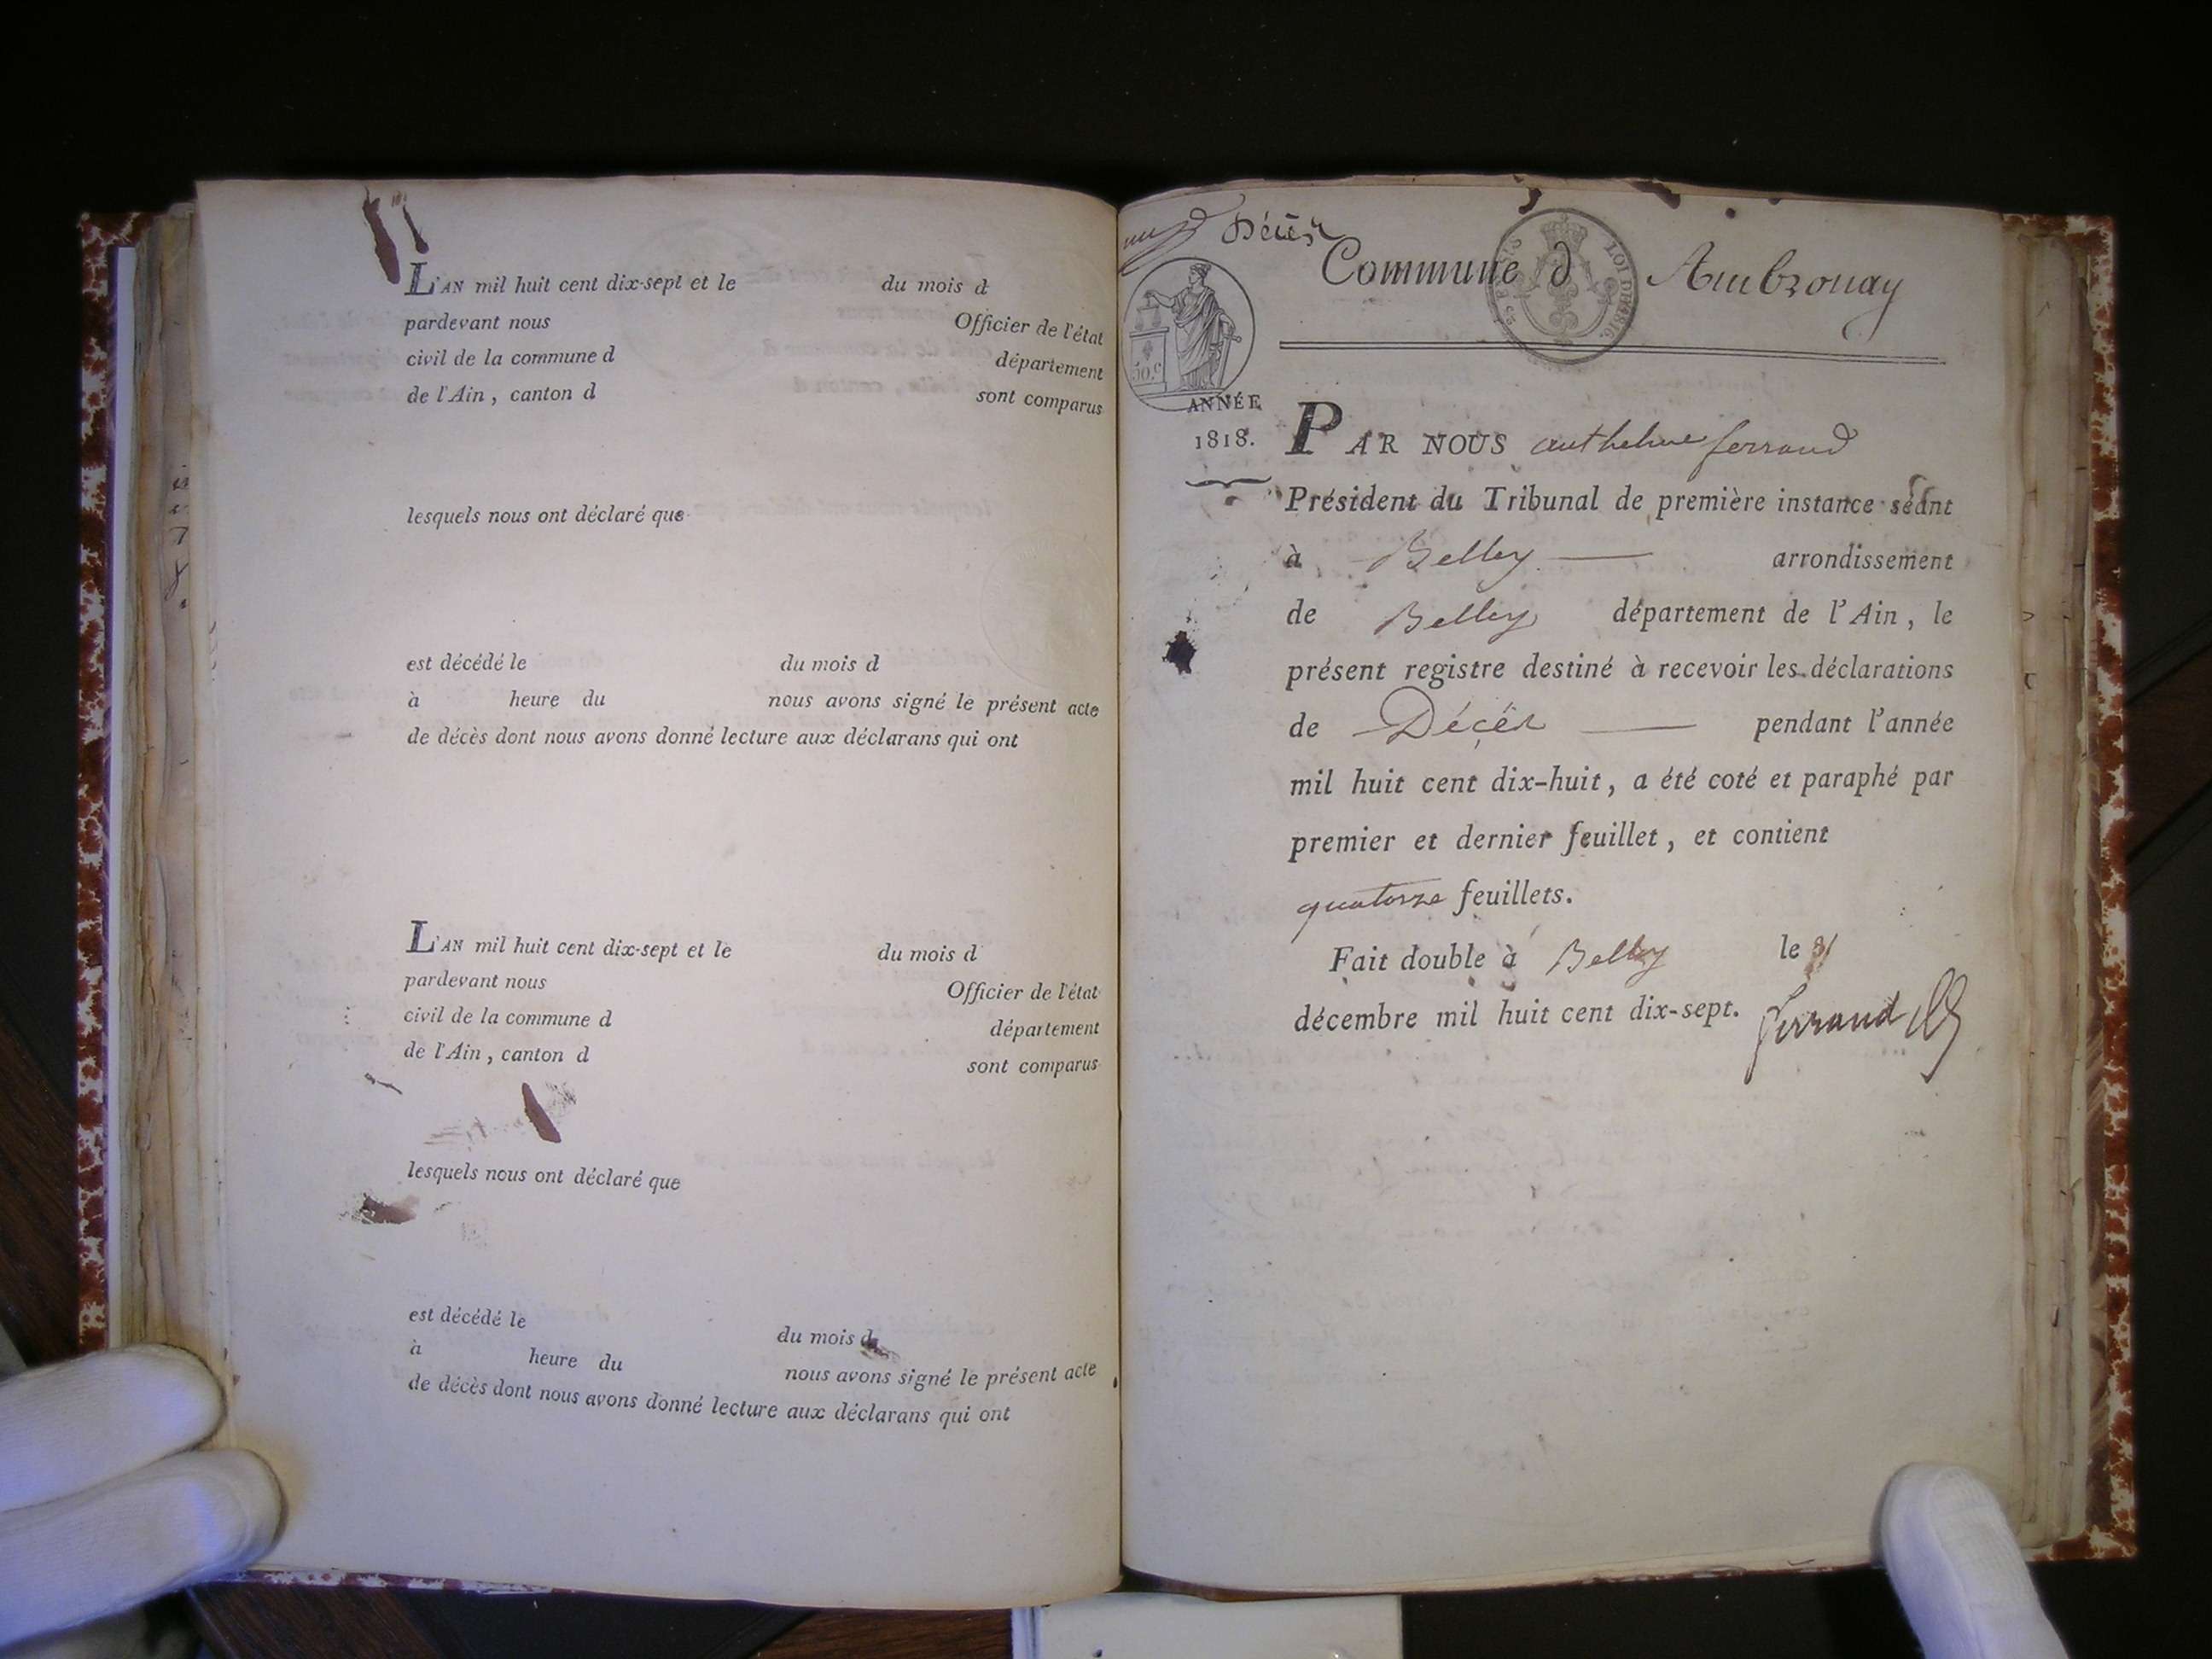 L'AN mil huit cent dix-sept et le du mois d
pardevant nous Officier de l'état
civil de la commune d département
de l'Ain, canton d sont comparus
lesquels nous ont déclaré que
est décédé le du mois d
à heure du nous avons signé le présent acte
de décès dont nous avons donné lecture aux déclarans qui ont
L'AN mil huit cent dix-sept et le du mois d
pardevant nous Officier de l'état
civil de la commune d département
de l'Ain, canton d sont comparus
lesquels nous ont déclaré que
est décédé le du mois d
à heure du nous avons signé le présent acte
de décès dont nous avons donné lecture aux déclarans qui ont
Décès
Commune d Ambronay
LOI DE 1816.
50.c
ANNÉE
1818.
PAR NOUS anthelme ferrand
Président du Tribunal de première instance séant
à Belley — arrondissement
de Belley département de l'Ain, le
présent registre destiné à recevoir les déclarations
de Décès — pendant l'année
mil huit cent dix-huit, a été coté et paraphé par
premier et dernier feuillet, et contient
quatorze feuillets.
Fait double à Belley le
décembre mil huit cent dix-sept. ferrand